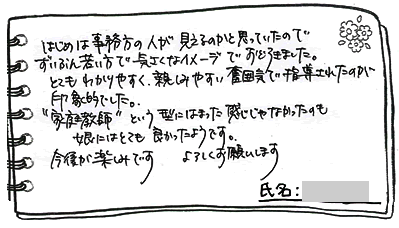 はじめは事務方の人が見えるのかと思っていたので
ずいぶん若い方で気さくなイメージでおどろきました。
とてもわかりやすく、親しみやすい雰囲気で指導されたのが
印象的でした。
"家庭教師"という型にはまった感じじゃなかったのも
娘にはとても良かったようです。
今後が楽しみです よろしくお願いします
氏名: